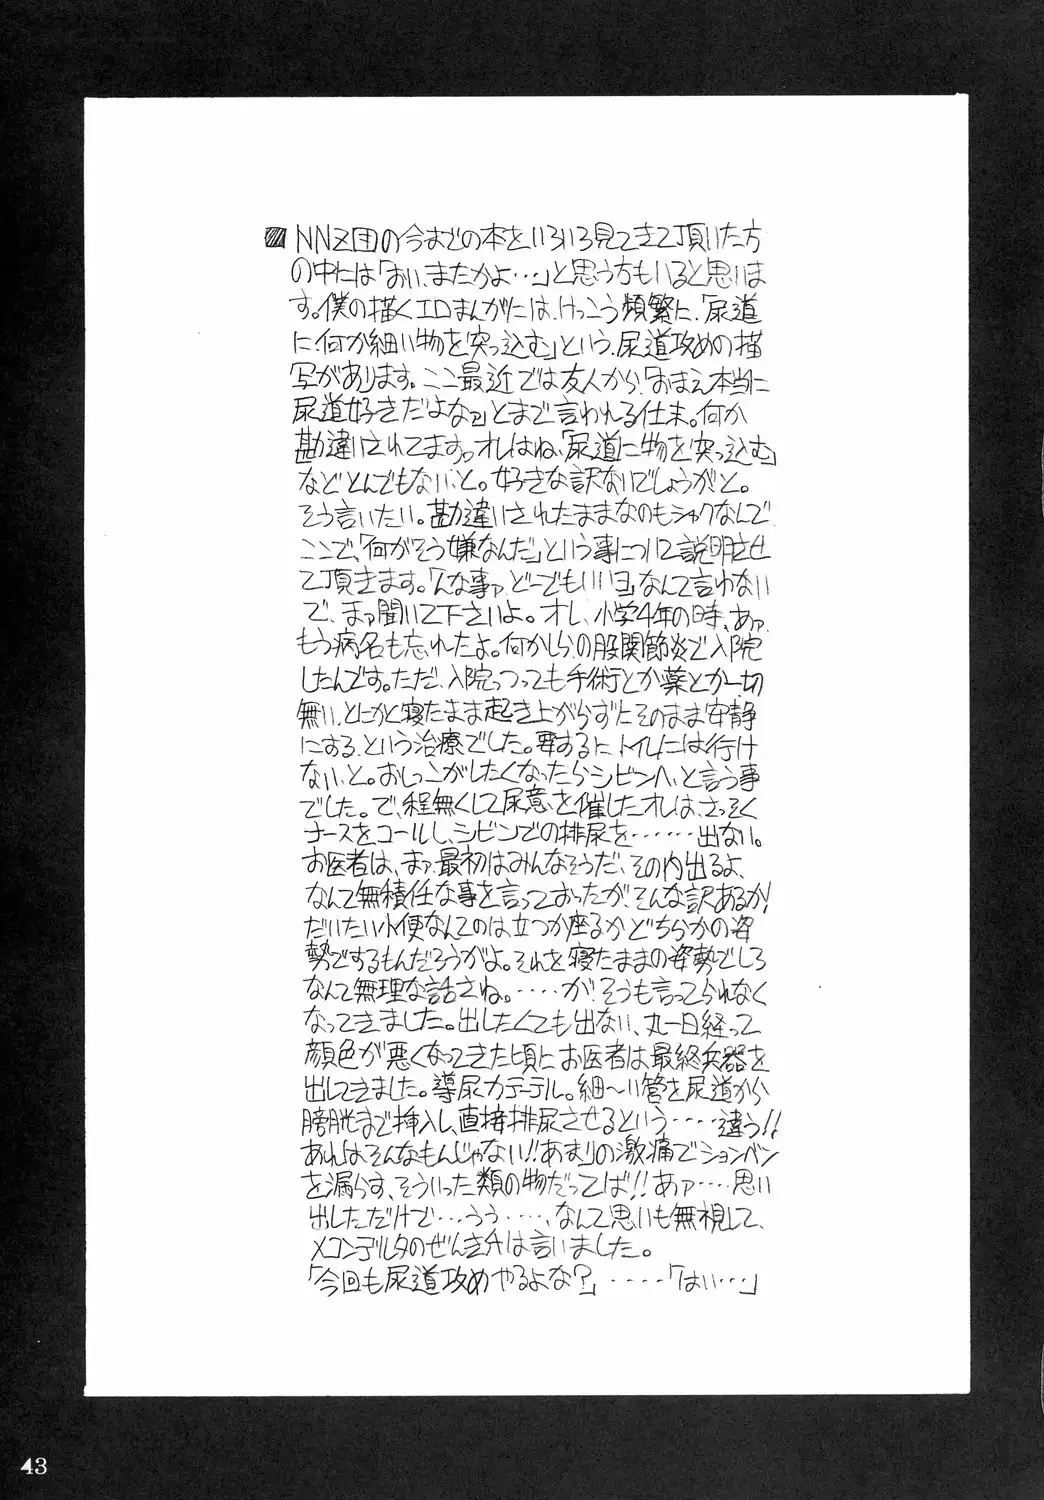 ■NNZ団の今までの本をいろいろ見てきて頂いた方
の中には「おい、またかよ…」と思う方もいると思いま
す。僕の描くエロまんがには、けっこう頻繁に、「尿道
に、何か細い物を突っ込む」という、尿道攻めの描
写があります。ここ最近では友人から、「おまえ本当に
尿道好きだよなァ」とまで言われる仕末。何か
勘違いされてますっ。オレはね、「尿道に物を突っ込む」
などとんでもない、と。好きな訳ないでしょうがと。
そう言いたい。勘違いされたままなのもシャクなんで
ここで、「何がそう嫌なんだ」という事について説明させ
て頂きます。「んな事ァ、どーでもいいヨ」なんて言わない
で、まァ聞いて下さいよ。オレ、小学4年の時、あァ、
もう病名も忘れたよ。何かしらの股関節炎で入院
したんです。ただ、入院っつっても手術とか薬とか一切
無い、とにかく寝たまま起き上がらずにそのまま安静
にする、という治療でした。要するに、トイレには行け
ない、と。おしっこがしたくなったらシビンへ、と言う事
でした。で、程無くして尿意を催したオレは、さっそく
ナースをコールし、シビンでの排尿を………出ない。
お医者は、まァ、最初はみんなそうだ、その内出るよ、
なんて無積任な事を言っておったが、そんな訳あるか!
だいたい小便なんてのは立つか座るかどちらかの姿
勢でするもんだろうがよ。それを寝たままの姿勢でしろ
なんて無理な話さね。‥‥が、そうも言ってられなく
なってきました。出したくても出ない、丸一日経って
顔色が悪くなってきた頃に、お医者は最終兵器を
出してきました。導尿カテーテル。細〜い管を尿道から
膀胱まで挿入し、直接排尿させるという‥‥違う!!
あれはそんなもんじゃない!!あまりの激痛でションベン
を漏らす、そういった類の物だってば!!あァ‥‥思い
出しただけで…うぅ‥‥、なんて思いも無視して、
メコンデルタのぜんき弁は言いました。
「今回も尿道攻めやるよな?」‥‥‥「はい…」
43